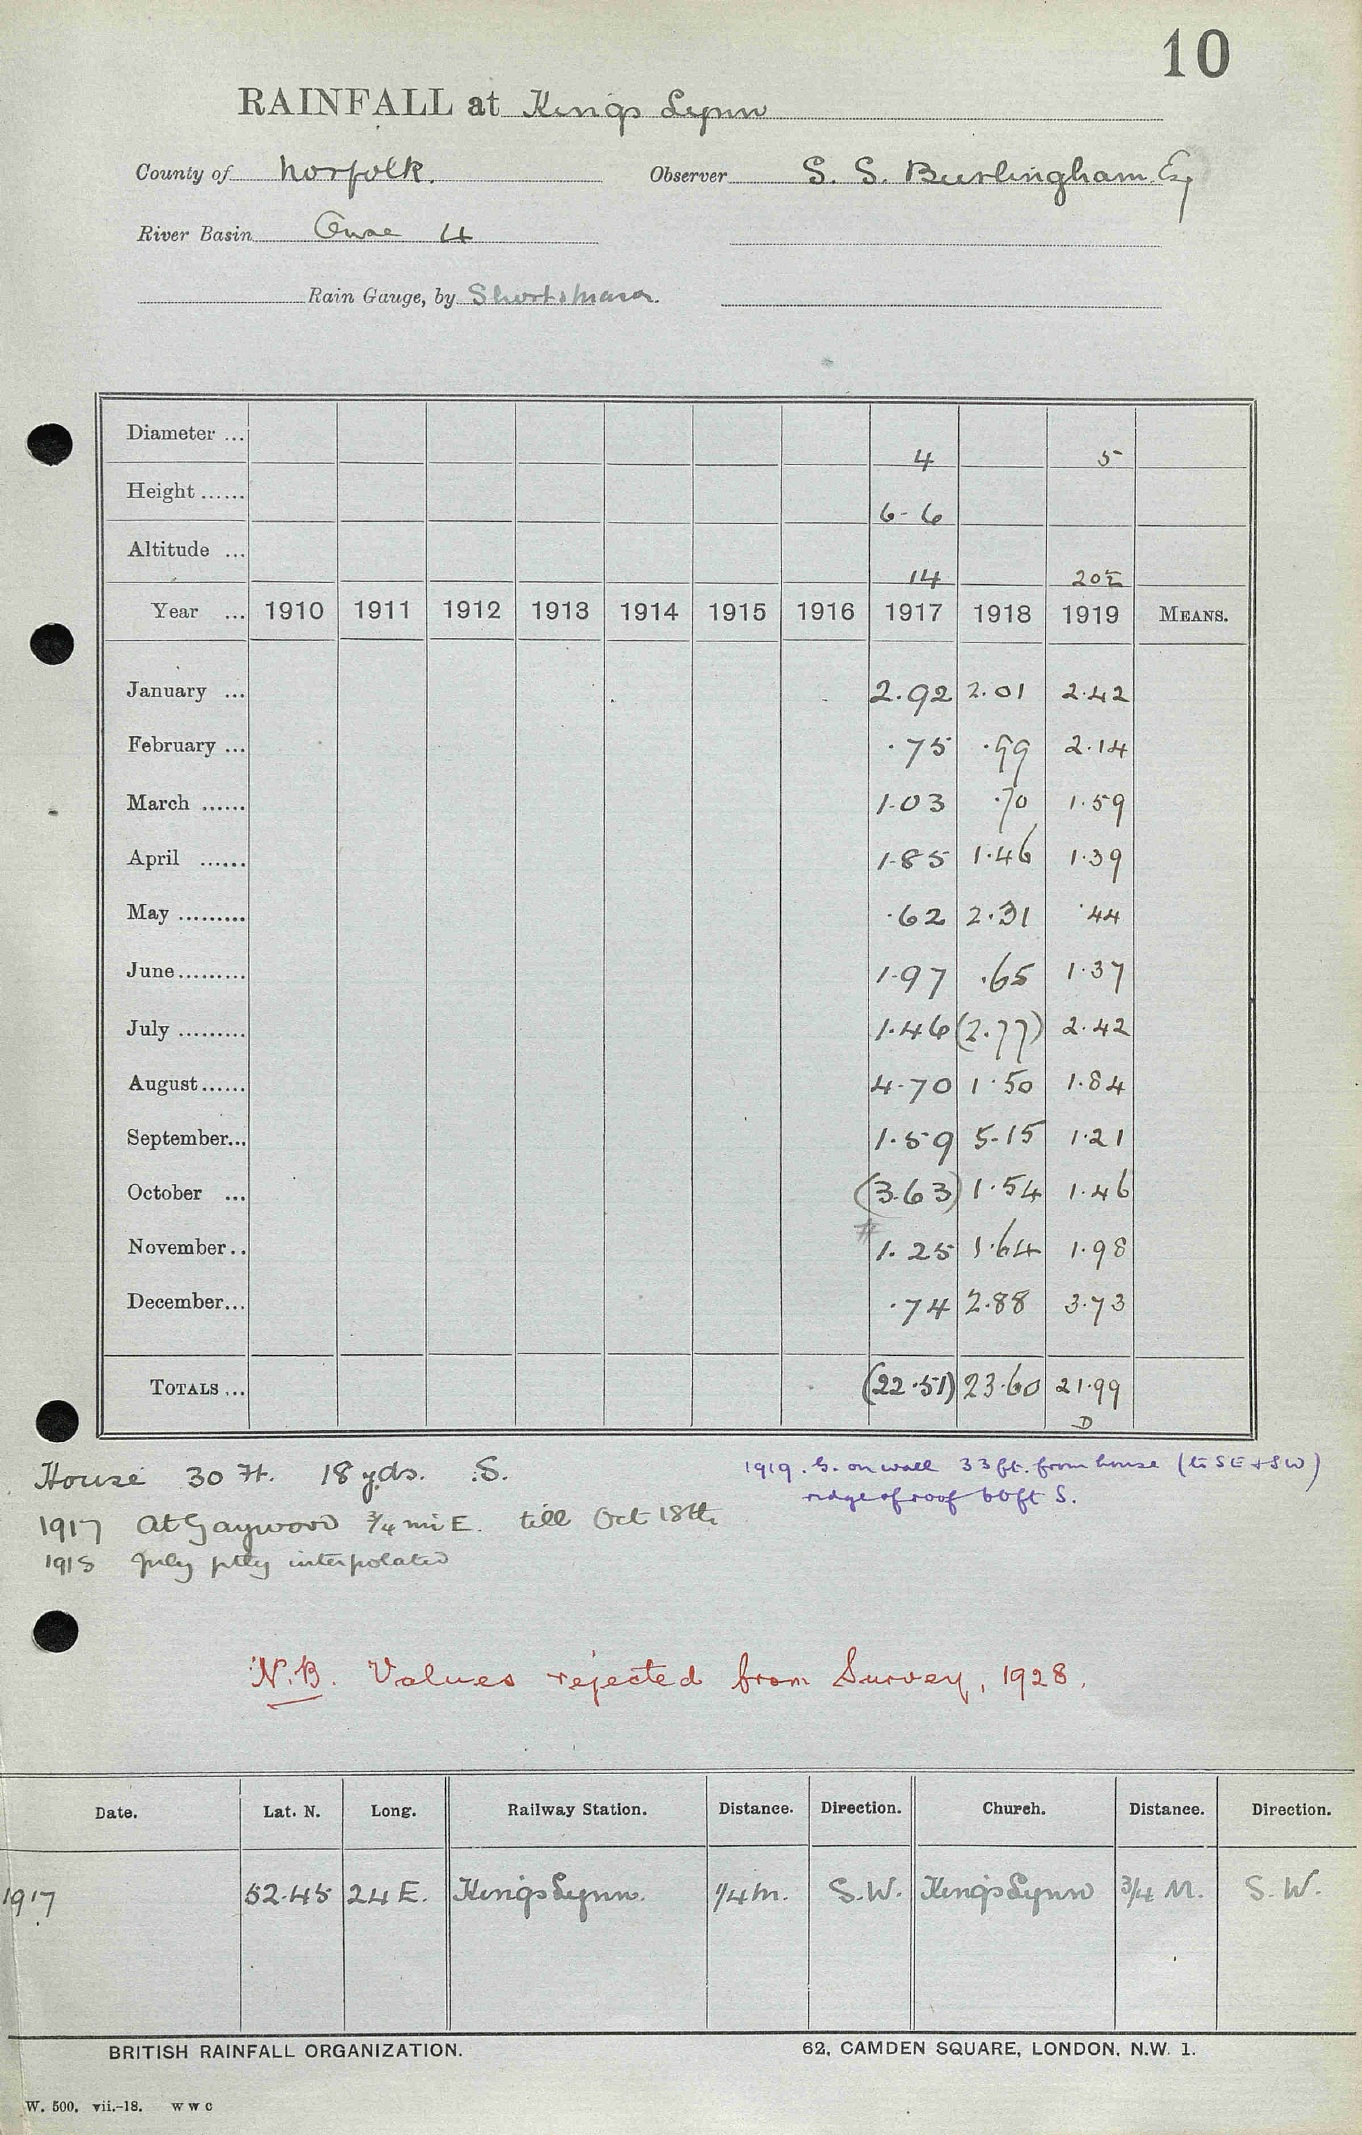 10
RAINFALL at Kings Lynn
County of Norfolk. Observer S. S. Burlingham Esq
River Basin Ouse 4
Rain Gauge, by Short & Mason.
Diameter ... 4 5
Height ...... 6-6
Altitude ... 14 20
Year ... 1910 1911 1912 1913 1914 1915 1916 1917 1918 1919 MEANS.
January ... 2.92 2.01 2.42
February ... .75 .99 2.14
March ...... 1.03 .70 1.59
April ...... 1.85 1.46 1.39
May ......... .62 2.31 .44
June ......... 1.97 .65 1.37
July ......... 1.46 (2.77) 2.42
August ...... 4.70 1.50 1.84
September... 1.59 5.15 1.21
October ... (3.63) 1.54 1.46
November .. # 1.25 1.64 1.98
December... .74 2.88 3.73
TOTALS ... (22.51) 23.60 21.99
D
House 30 ft. 18 yds. S.
1919. G. on wall 33 ft. from house (to SE & SW)
ridge of roof 60 ft S.
1917 At Gaywood 3/4 mi E. till Oct 18th
1918 July ptly interpolated
N.B. Values rejected from Survey, 1928.
Date. Lat. N. Long. Railway Station. Distance. Direction. Church. Distance. Direction.
1917 52.45 24 E. King's Lynn. 1/4 m. S.W. King's Lynn 3/4 M. S.W.
BRITISH RAINFALL ORGANIZATION. 62, CAMDEN SQUARE, LONDON, N.W. 1.
W. 500. vii.-18. W W C